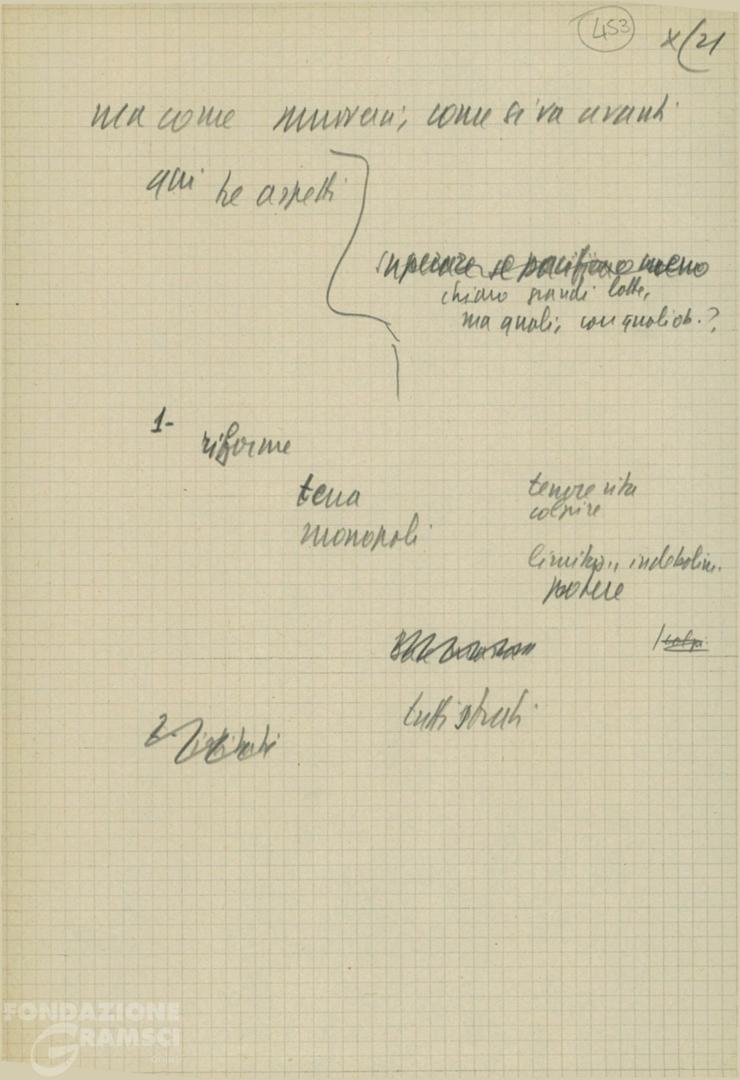 453
X/21
ma come muoversi, come si va avanti
qui tre aspetti
se pacifico o meno
chiaro grandi lotte,
ma quali, con quali ob.?
1-
riforme
terra
monopoli
tenore vita
colpire
limitaz., indebolim.
potere
colpi
tutti strati
2-
FONDAZIONE
GRAMSCI